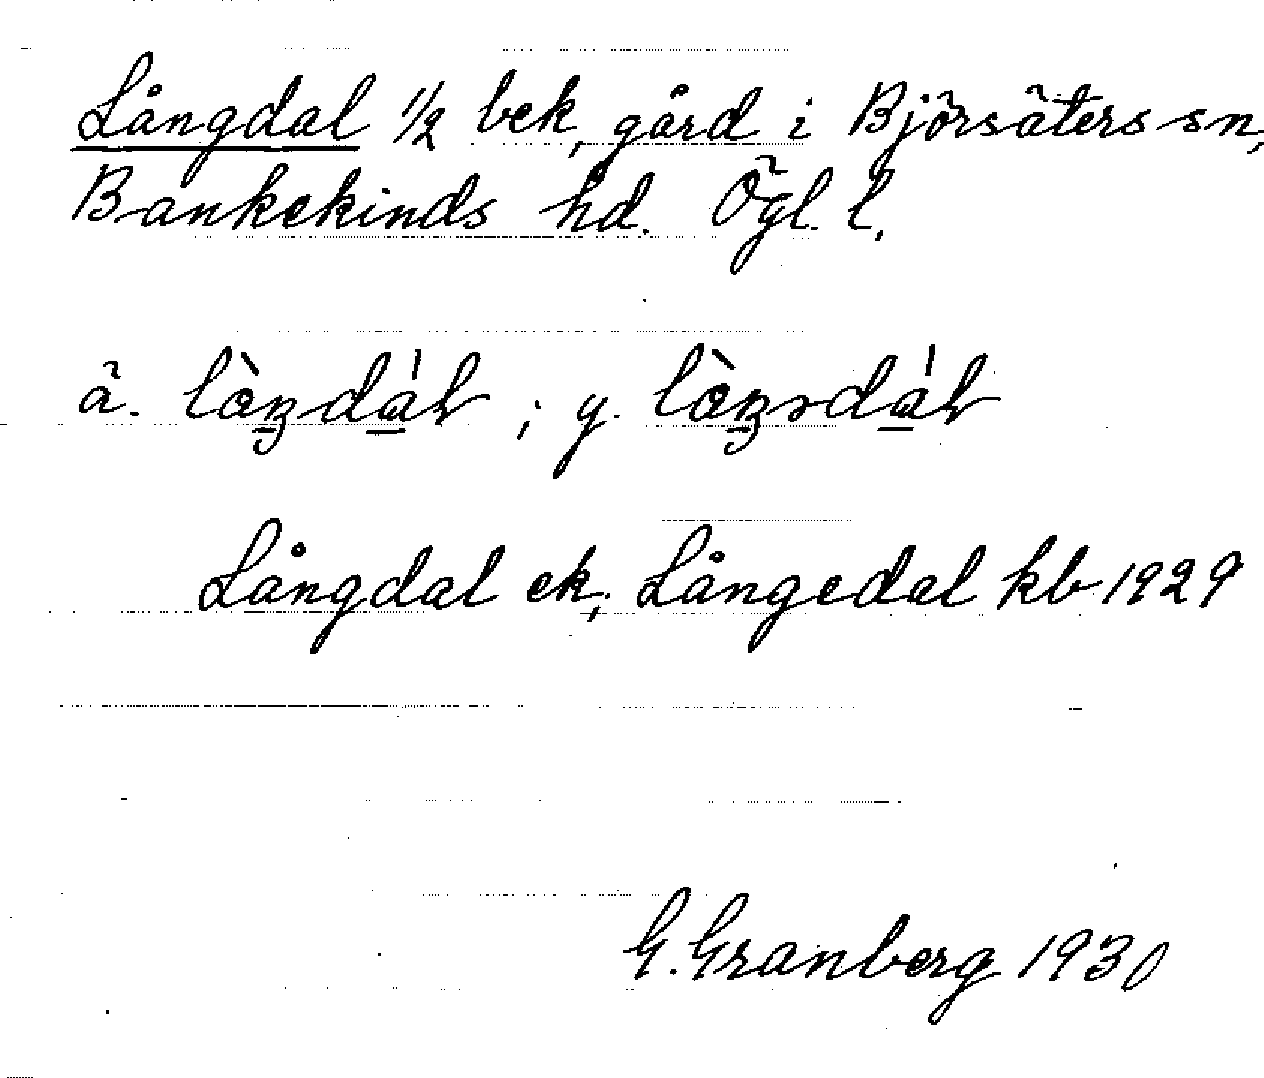 Långdal 1/2 bek, gård i Björsäters sn,
Bankekinds hd. Ögl. l.
ä. ; y.
Långdal ek, Långedal kb 1929
G. Granberg 1930